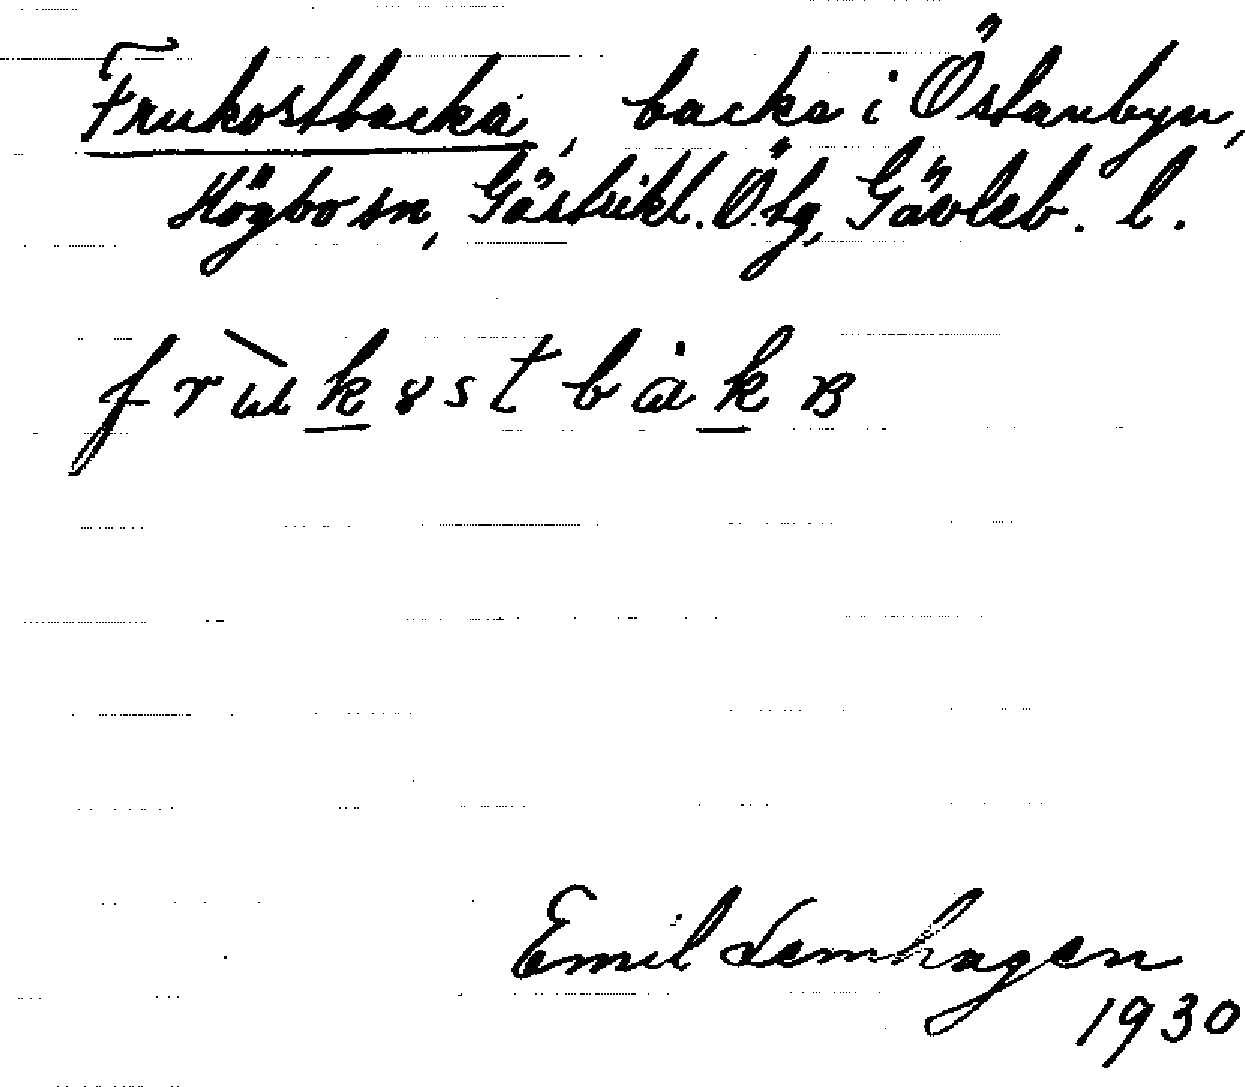 Frukostbacka, backe i Östanbyn,
Högbo sn, Gästrikl. Ötg, Gävleb. l.
frùkostbakα
Emil Lemhagen
1930